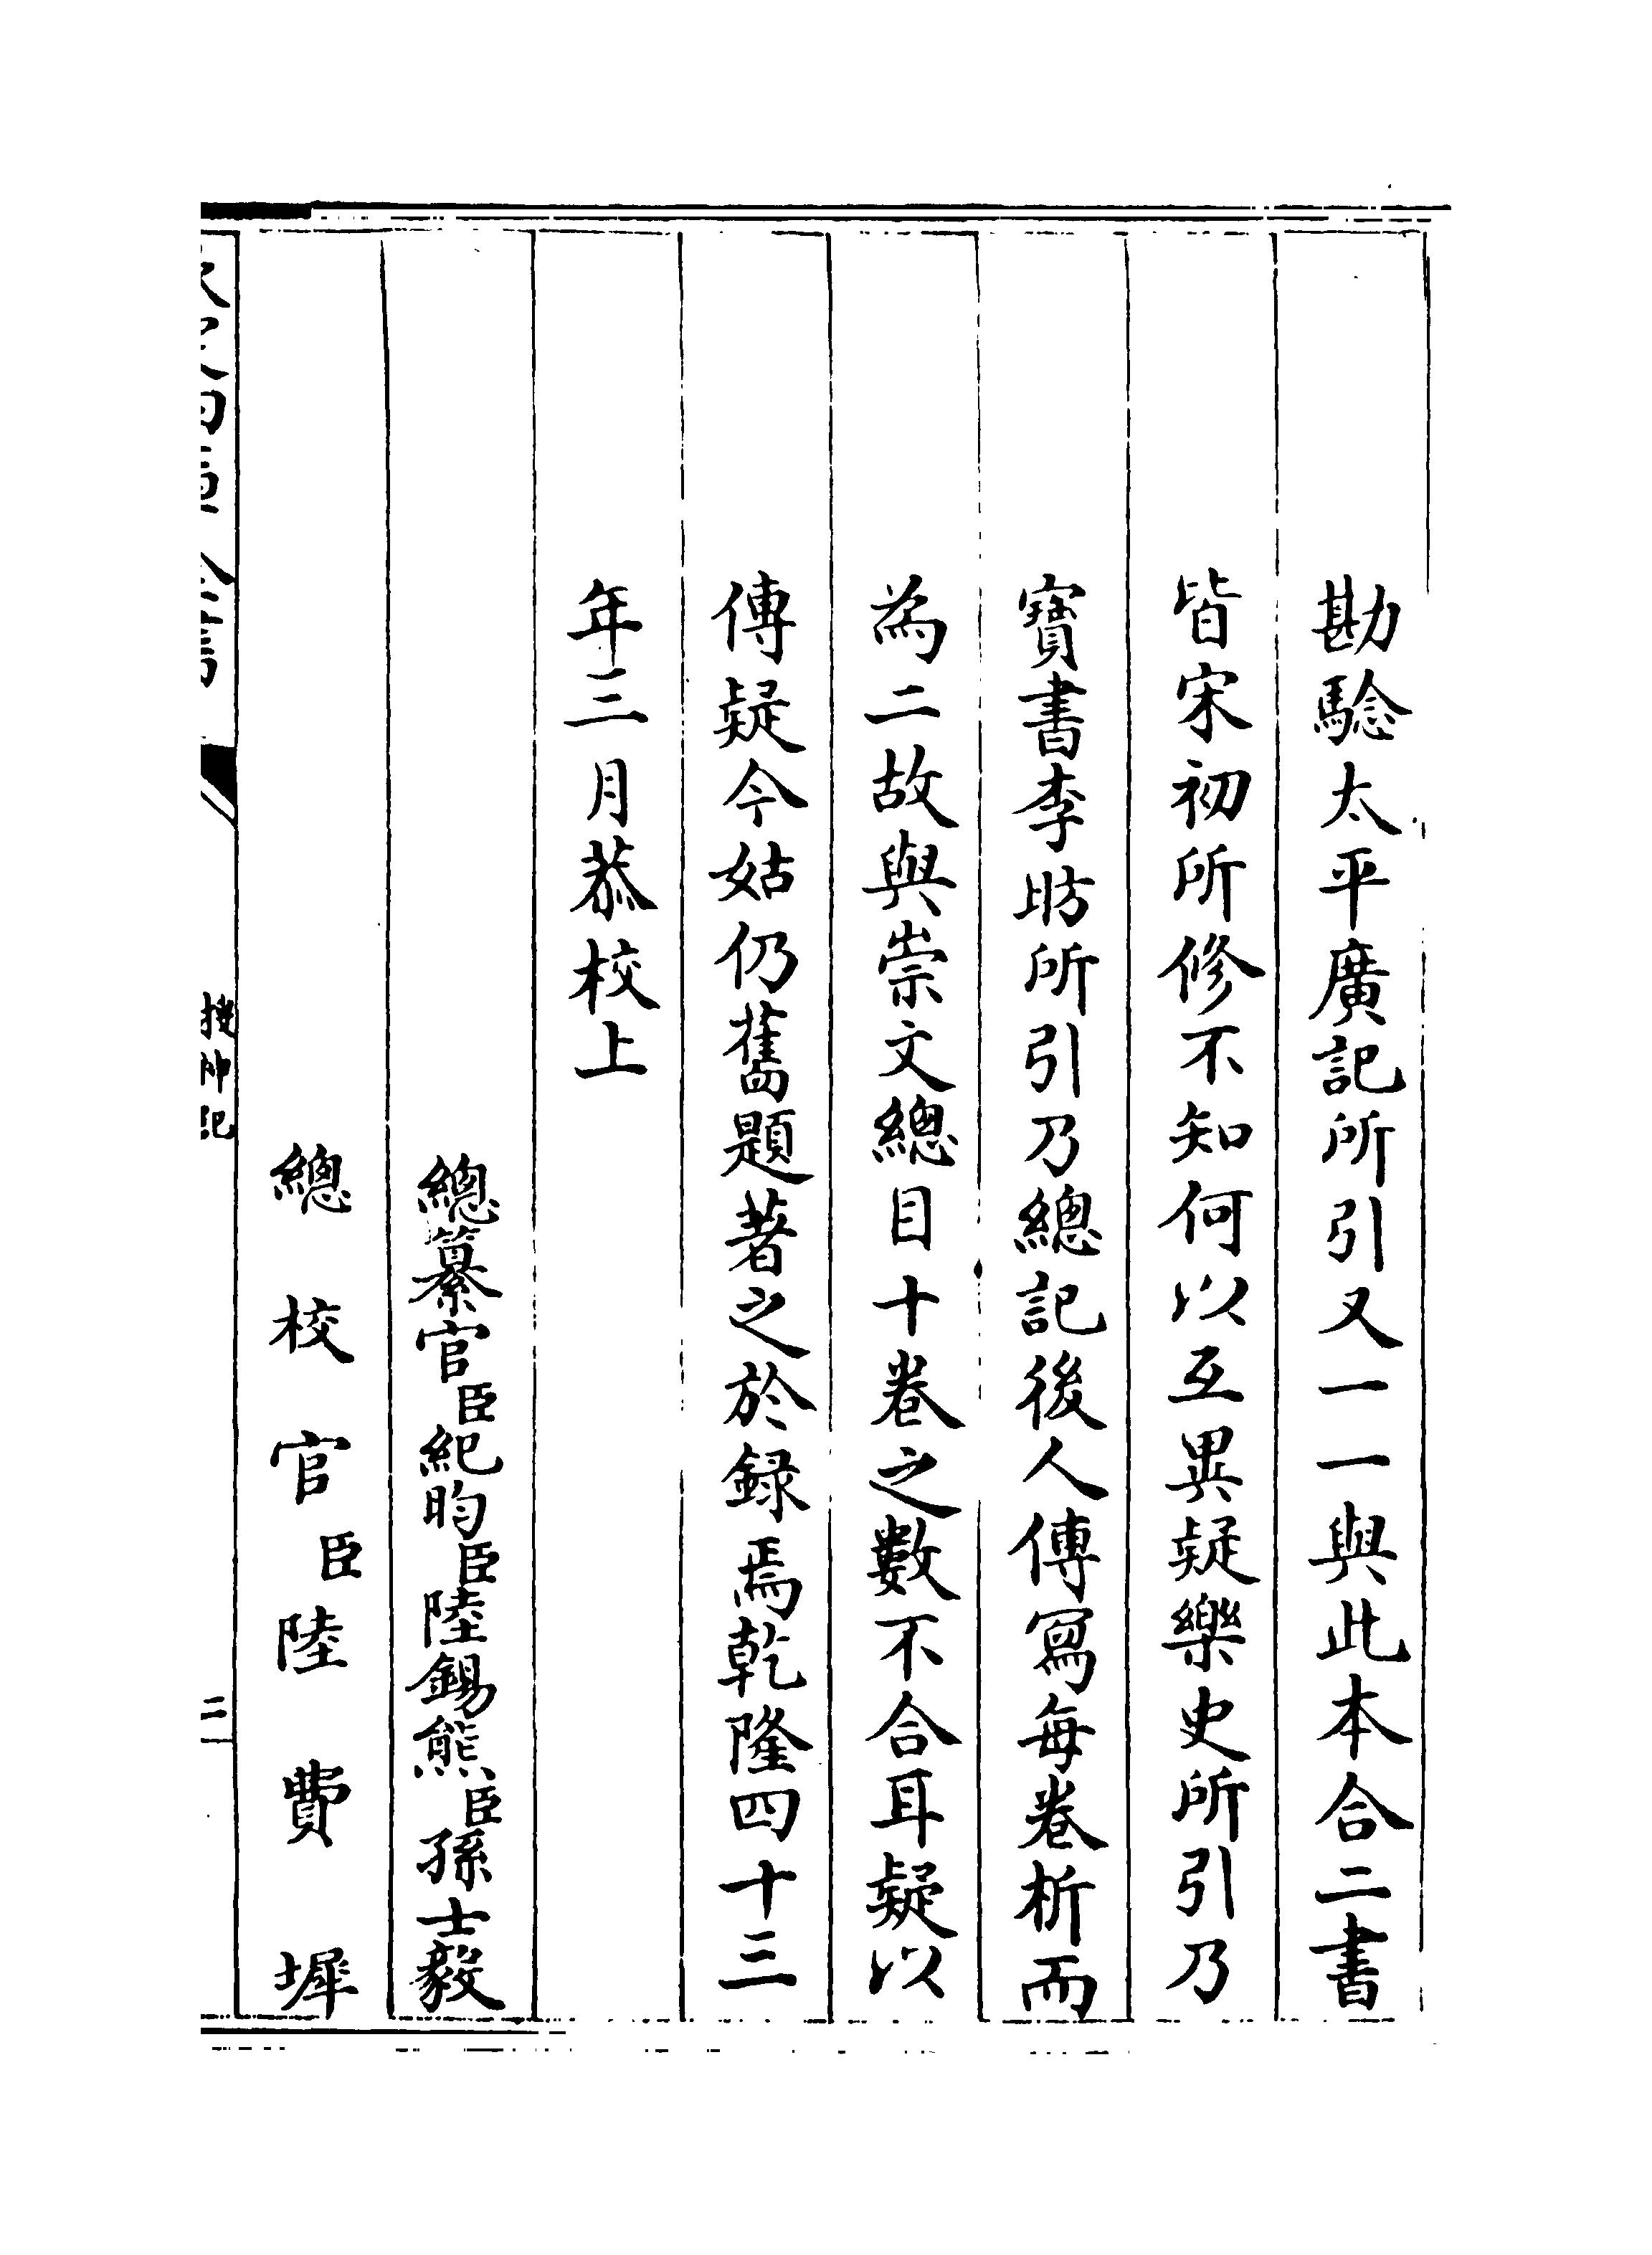 勘驗太平廣記所引又一一與此本合二書
皆宋初所修不知何以互異疑樂史所引乃
寳書李昉所引乃總記後人傳寫每卷析而
為二故與崇文總目十卷之數不合耳疑以
傳疑今姑仍舊題著之於録焉乾隆四十三
年三月恭校上
總纂官臣紀昀臣陸錫熊臣孫士毅
總校官臣陸費墀
欽定四庫全書
搜神記
二